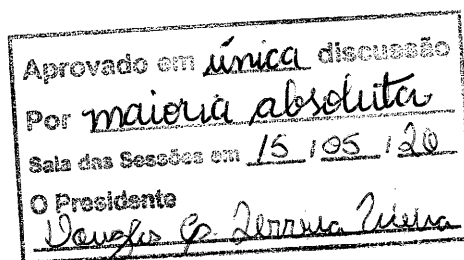 Aprovado em única discussão
Por maioria absoluta
Sala das Sessões em 15 / 05 / 20
O Presidente
Douglas